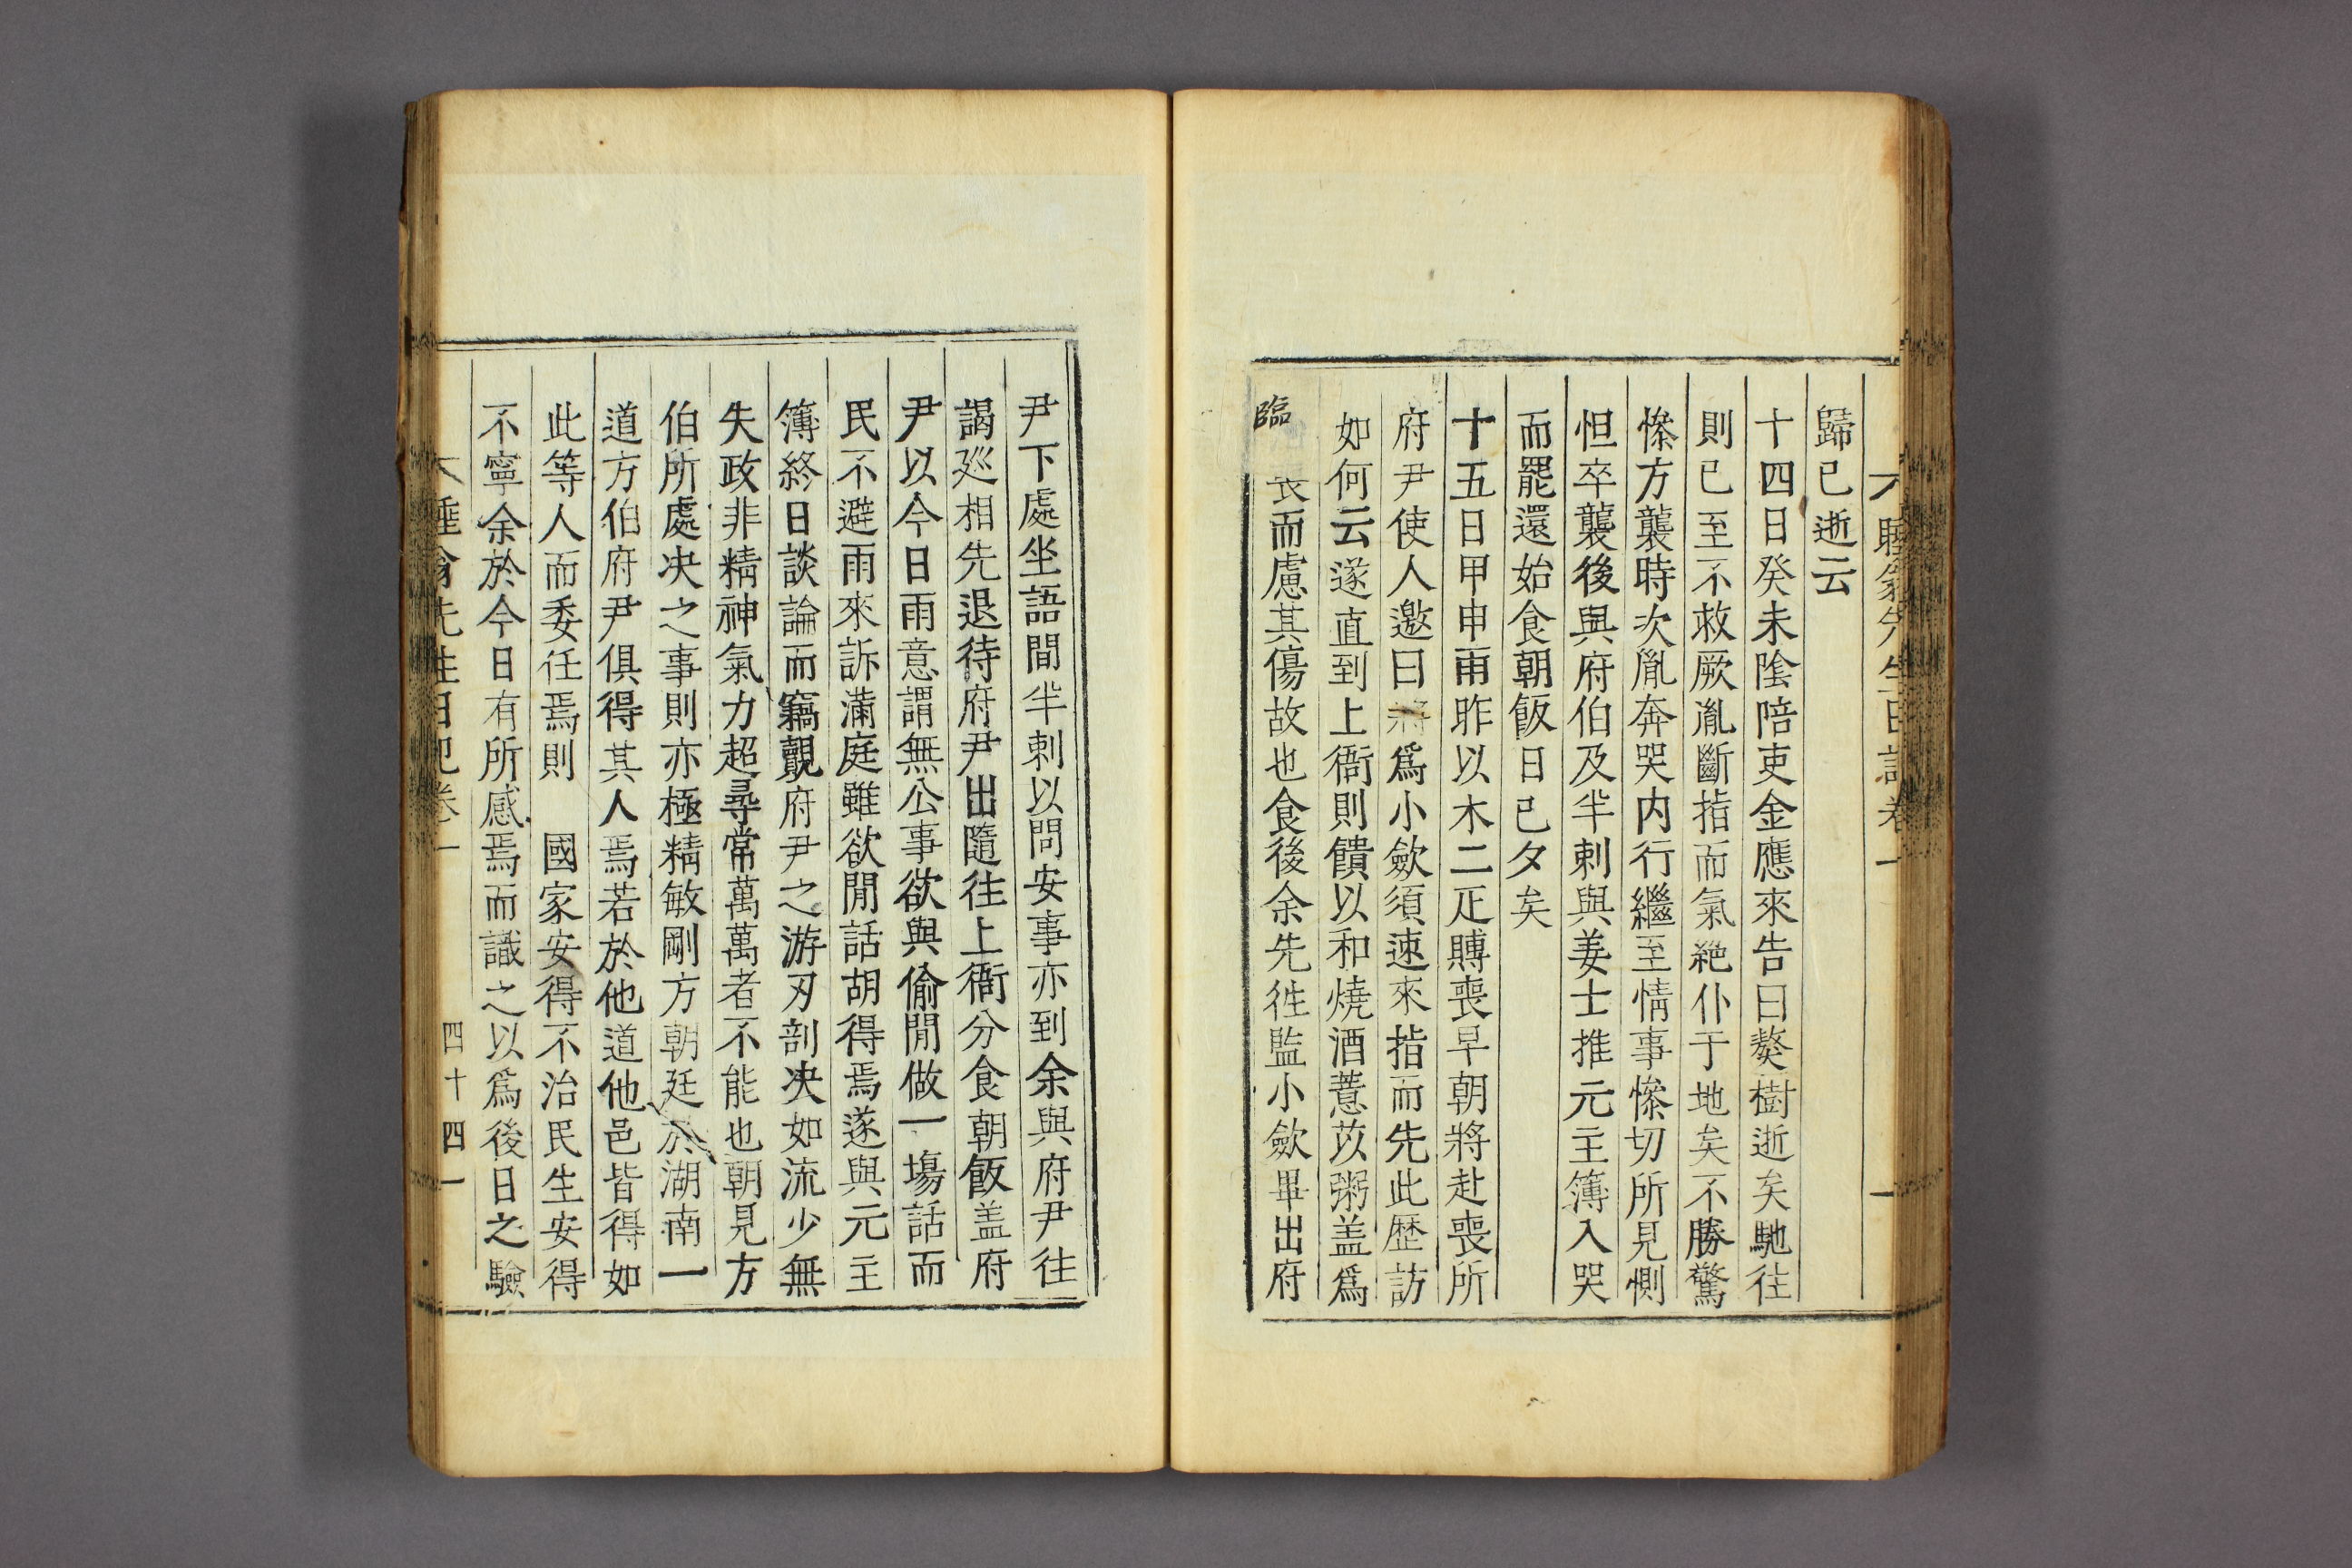 睡翁先生日記卷一
歸已逝云
十四日癸未陰陪吏金應來告曰獒樹逝矣馳往
則已至不救厥胤斷指而氣絶仆于地矣不勝驚
慘方襲時次胤奔哭内行繼至情事慘切所見惻
怛卒襲後與府伯及半刺與姜士推元主簿入哭
而罷還始食朝飯日已夕矣
十五日甲申雨昨以木二疋賻喪早朝將赴喪所
府尹使人邀曰將爲小斂須速來指而先此歷訪
如何云遂直到上衙則饋以和燒酒薏苡粥盖爲
臨喪而慮其傷故也食後余先徃監小斂畢出府
尹下處坐語間半刺以問安事亦到余與府尹往
謁廵相先退待府尹出隨往上衙分食朝飯盖府
尹以今日雨意謂無公事欲與偷閒做一塲話而
民不避雨來訴滿庭雖欲閒話胡得焉遂與元主
簿終日談論而竊覿府尹之游刃剖决如流少無
失政非精神氣力超尋常萬萬者不能也朝見方
伯所處决之事則亦極精敏剛方朝廷於湖南一
道方伯府尹俱得其人焉若於他道他邑皆得如
此等人而委任焉則　國家安得不治民生安得
不寧余於今日有所感焉而識之以爲後日之驗
睡翁先生日記卷一　四十四